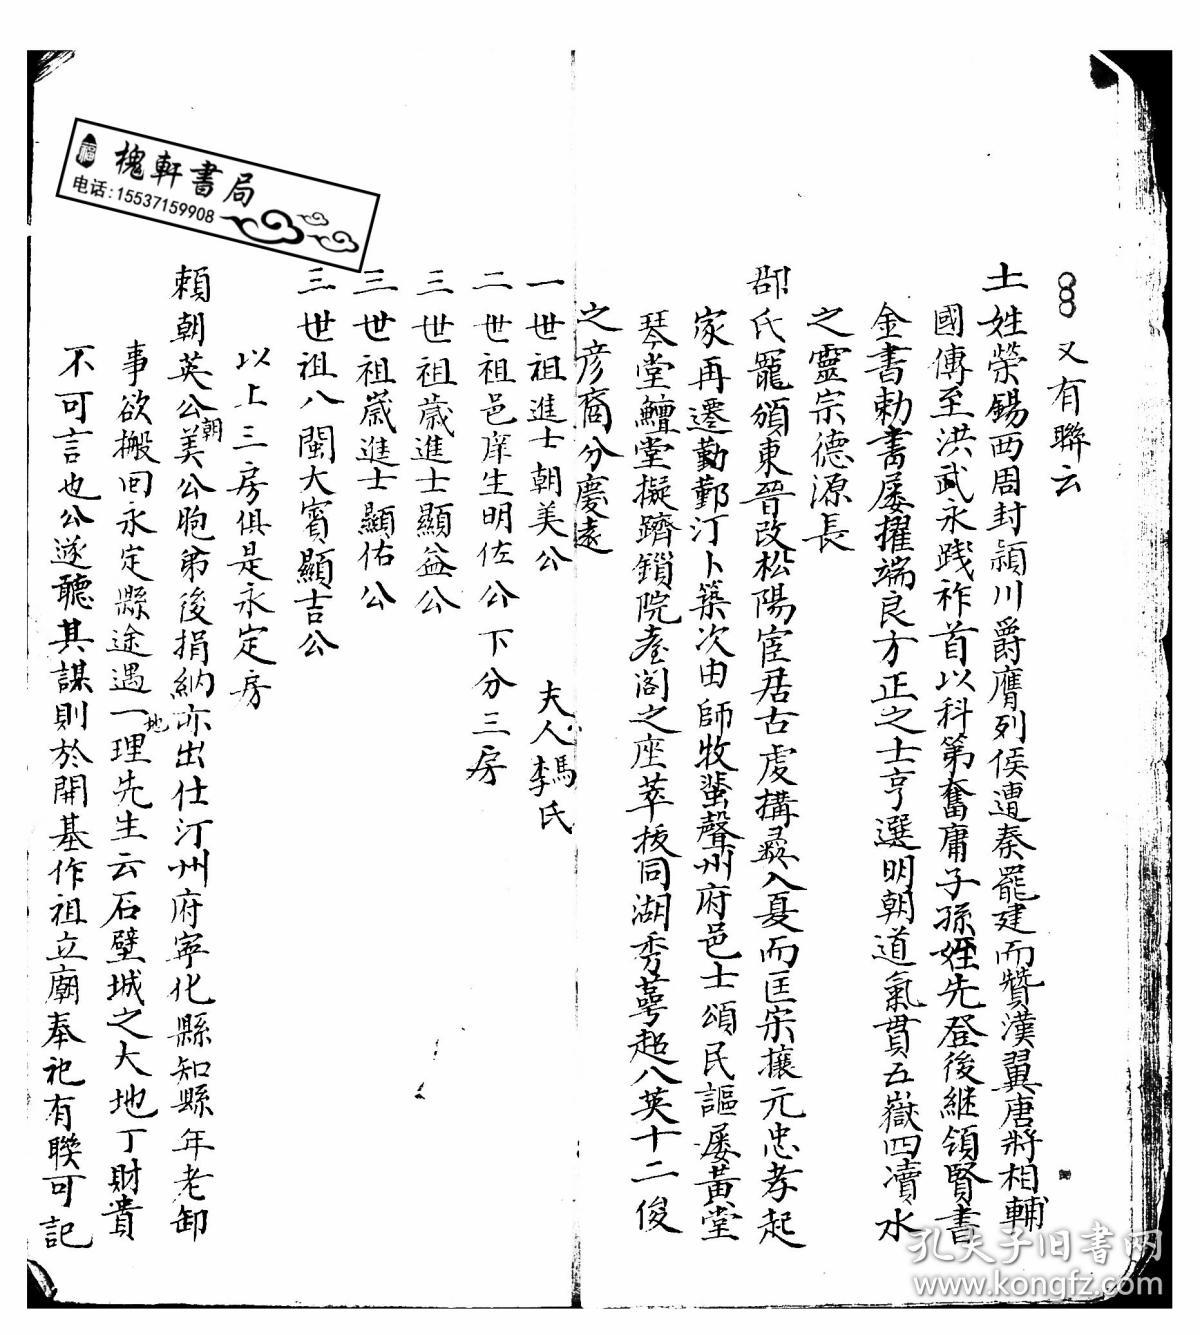 又有聯云
土姓榮錫西周封潁川爵膺列侯遭秦罷建而贊漢翼唐將相輔
國傳至洪武永践祚首以科第奮庸子孫姪先登後継領賢書
金書勅書屡擢端良方正之士亨選明朝道氣貫五嶽四瀆水
之靈宗德源長
郡氏寵頒東晉改松陽宦居古虔搆入夏而匡宋攘元忠孝起
家再遷勤鄞汀卜築次由師牧蜚聲州府邑士頌民謳屡黃堂
琴堂鱣堂擬躋鎖院臺阁之座萃拔同湖秀萼超八英十二俊
之彦裔分慶遠
一世祖進士朝美公 夫人李馮氏
二世祖邑庠生明佐公下分三房
三世祖歲進士顯益公
三世祖歲進士顯佑公
三世祖八閩大賓顯吉公
以上三房俱是永定房
頼朝英公朝美公胞弟後捐納亦出仕汀州府寧化縣知縣年老卸
事欲搬回永定縣途遇一地理先生云石壁城之大地丁財貴
不可言也公遂聽其謀則於開基作祖立廟奉祀有聯可記
槐軒書局
电话:15537159908
福
孔夫子旧书网
www.kongfz.com